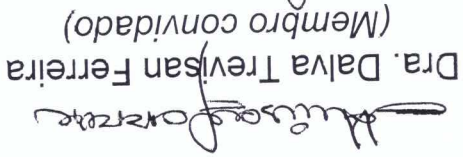 Dra. Dalva Trevisan Ferreira
(Membro convidado)